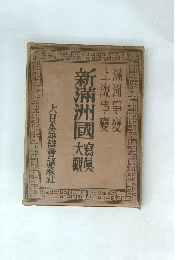 満洲事變
上海事變
新滿洲國
寫眞
大觀
大日本雄辯會講談社